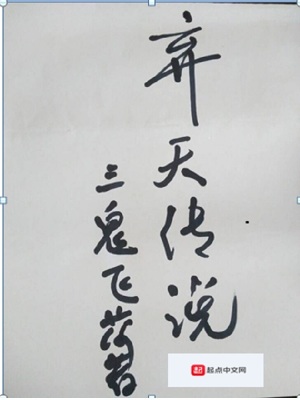 弃天传说
三鬼飞荷著
起点中文网